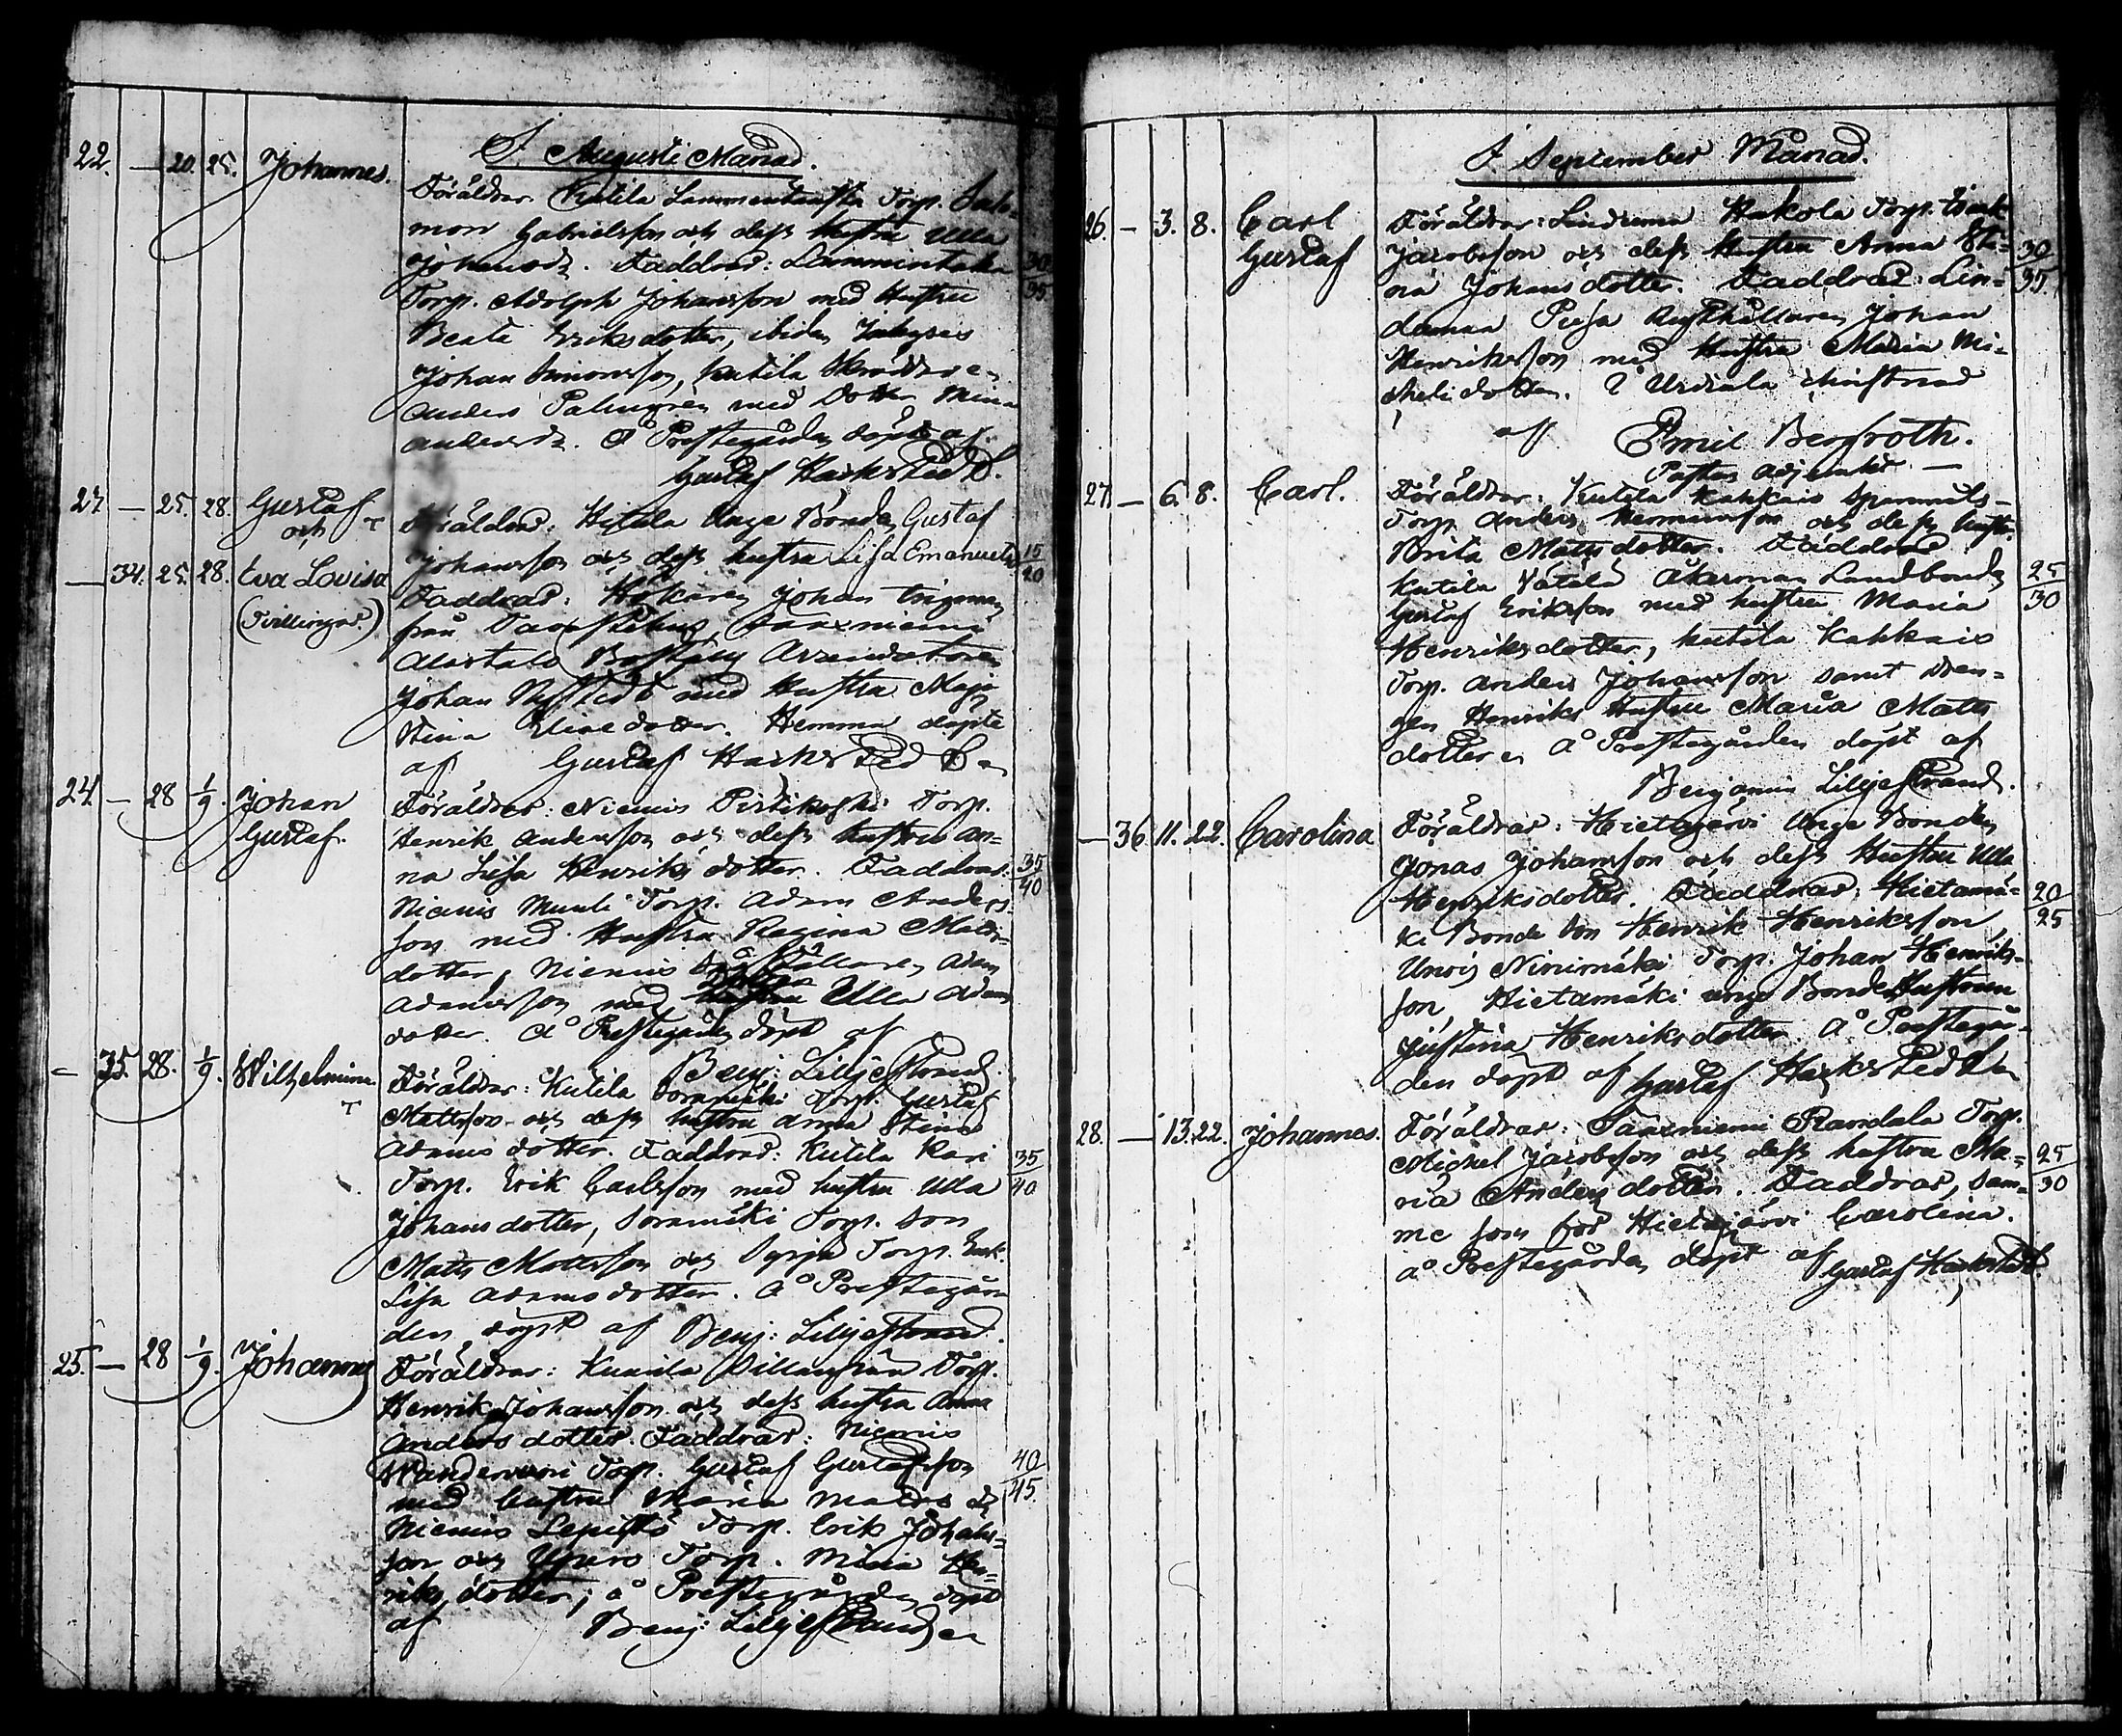 I Augusti Månad.
22. — 20. 25. Johannes. Föräldrar Kutila Lammentausta Torp. Salo-
mon Gabrielsson och dess hustru Ulla
Johansdr. Faddrar: Lammintaka 30/35
Torp. Adolph Johansson med Hustru
Beata Eriksdotter, ibidem
Johan Simonsson, Kutila Skräddaren
Anders Palmgren med Dotter Mina
Andersdr. Å Prestegården döpt af
Gustaf Hackstedt.
23 — 25. 28. Gustaf Föräldrar: Hitula Unge Bonden Gustaf
och Johansson och dess hustru Lisa Emanuelsd. 15/20
— 34. 25. 28. Eva Lovisa Faddrar: Hökaren Johan
(Tvillingar.) från Tavastehus, Saaxniemi
Alastalo Boställs Arrendatoren
Johan Nystedt med Hustru Maja
Stina Eliaedotter. Hemma döpte
af Gustaf Hackstedt
24 — 28 1/9. Johan Föräldrar: Niemis Pirtikoski Torp.
Gustaf. Henrik Andersson och dess hustru An-
na Lisa Henriksdotter. Faddrar: 35/40
Niemis Torp. Adam Anders-
son med Hustru Regina Matts-
dotter, Niemis Adam
Adamsson med Ulla Adams
dotter. Å Prestegården döpt af
Benj: Liljestrand.
— 35. 28. 1/9. Wilhelmina Föräldrar: Kutila Soramäki Torp. Gustaf
Mattsson och dess hustru Anna Stina
Adamsdotter. Faddrar: Kutila Kari 35/40
Torp. Erik Carlsson med hustru Ulla
Johansdotter, Soramäki Torp. Son
Matts Mattsson och Torp. Enk.
Lisa Adamsdotter. Å Prestegår
den döpt af Benj: Liljestrand.
25. — 28 1/9. Johannes Föräldrar: Torp.
Henrik Johansson och dess hustru Anna
Andersdotter. Faddrar: Niemis
Torp. Gustaf Gustafsson 40/45.
med hustru Maria Matts dr
Niemis Lepistö Torp. Erik Johans-
son och Torp. Maria Hen-
riksdotter; å Prestegården döpt
af Benj: Liljestrand
I September Månad.
26. — 3. 8. Carl Föräldrar: Hakola Torp. Isaak
Gustaf Jacobsson och dess hustru Anna Sti- 30/35.
na Johansdotter. Faddrar: Lin-
Rusthållaren Johan
Henriksson med Hustru Maria Mi-
chelsdotter. I Urdiala christnad
af Emil Bergroth.
Pastors adjunkt —
27. — 6. 8. Carl. Föräldrar: Kutila Kahkais
Torp. Anders Hermansson och dess hustr.
Brita Mattsdotter. Faddrar
Kutila Åkerman Landbonden 25/30
Gustaf Eriksson med hustru Maria
Henriksdotter, Kutila Kahkais
Torp. Anders Johansson samt dren-
gen Henriks Hustru Maria Matts
dotter. Å Prestegården döpt af
Benjamin Liljestrand.
— 36 11. 22. Carolina Föräldrar: Hietajärvi Unge Bonden
Jonas Johansson och dess Hustru Ulla
Henriksdotter. Faddrar: Hietamä- 20/25
ki Bonde Son Henrik Henriksson,
Niinimäki Torp. Johan Henriks-
son, Hietamäki unge Bonde Hustrun
Justina Henriksdotter. Å Prestegår-
den döpt af Gustaf Hackstedt
28. — 13. 22. Johannes. Föräldrar: Saaxniemi Randala Torp.
Michel Jacobsson och dess hustru Ma- 25/30
ria Andersdotter. Faddrar, sam-
me som för Hietajärvi Carolina.
å Prestegården döpt af Gustaf Hackstedt.